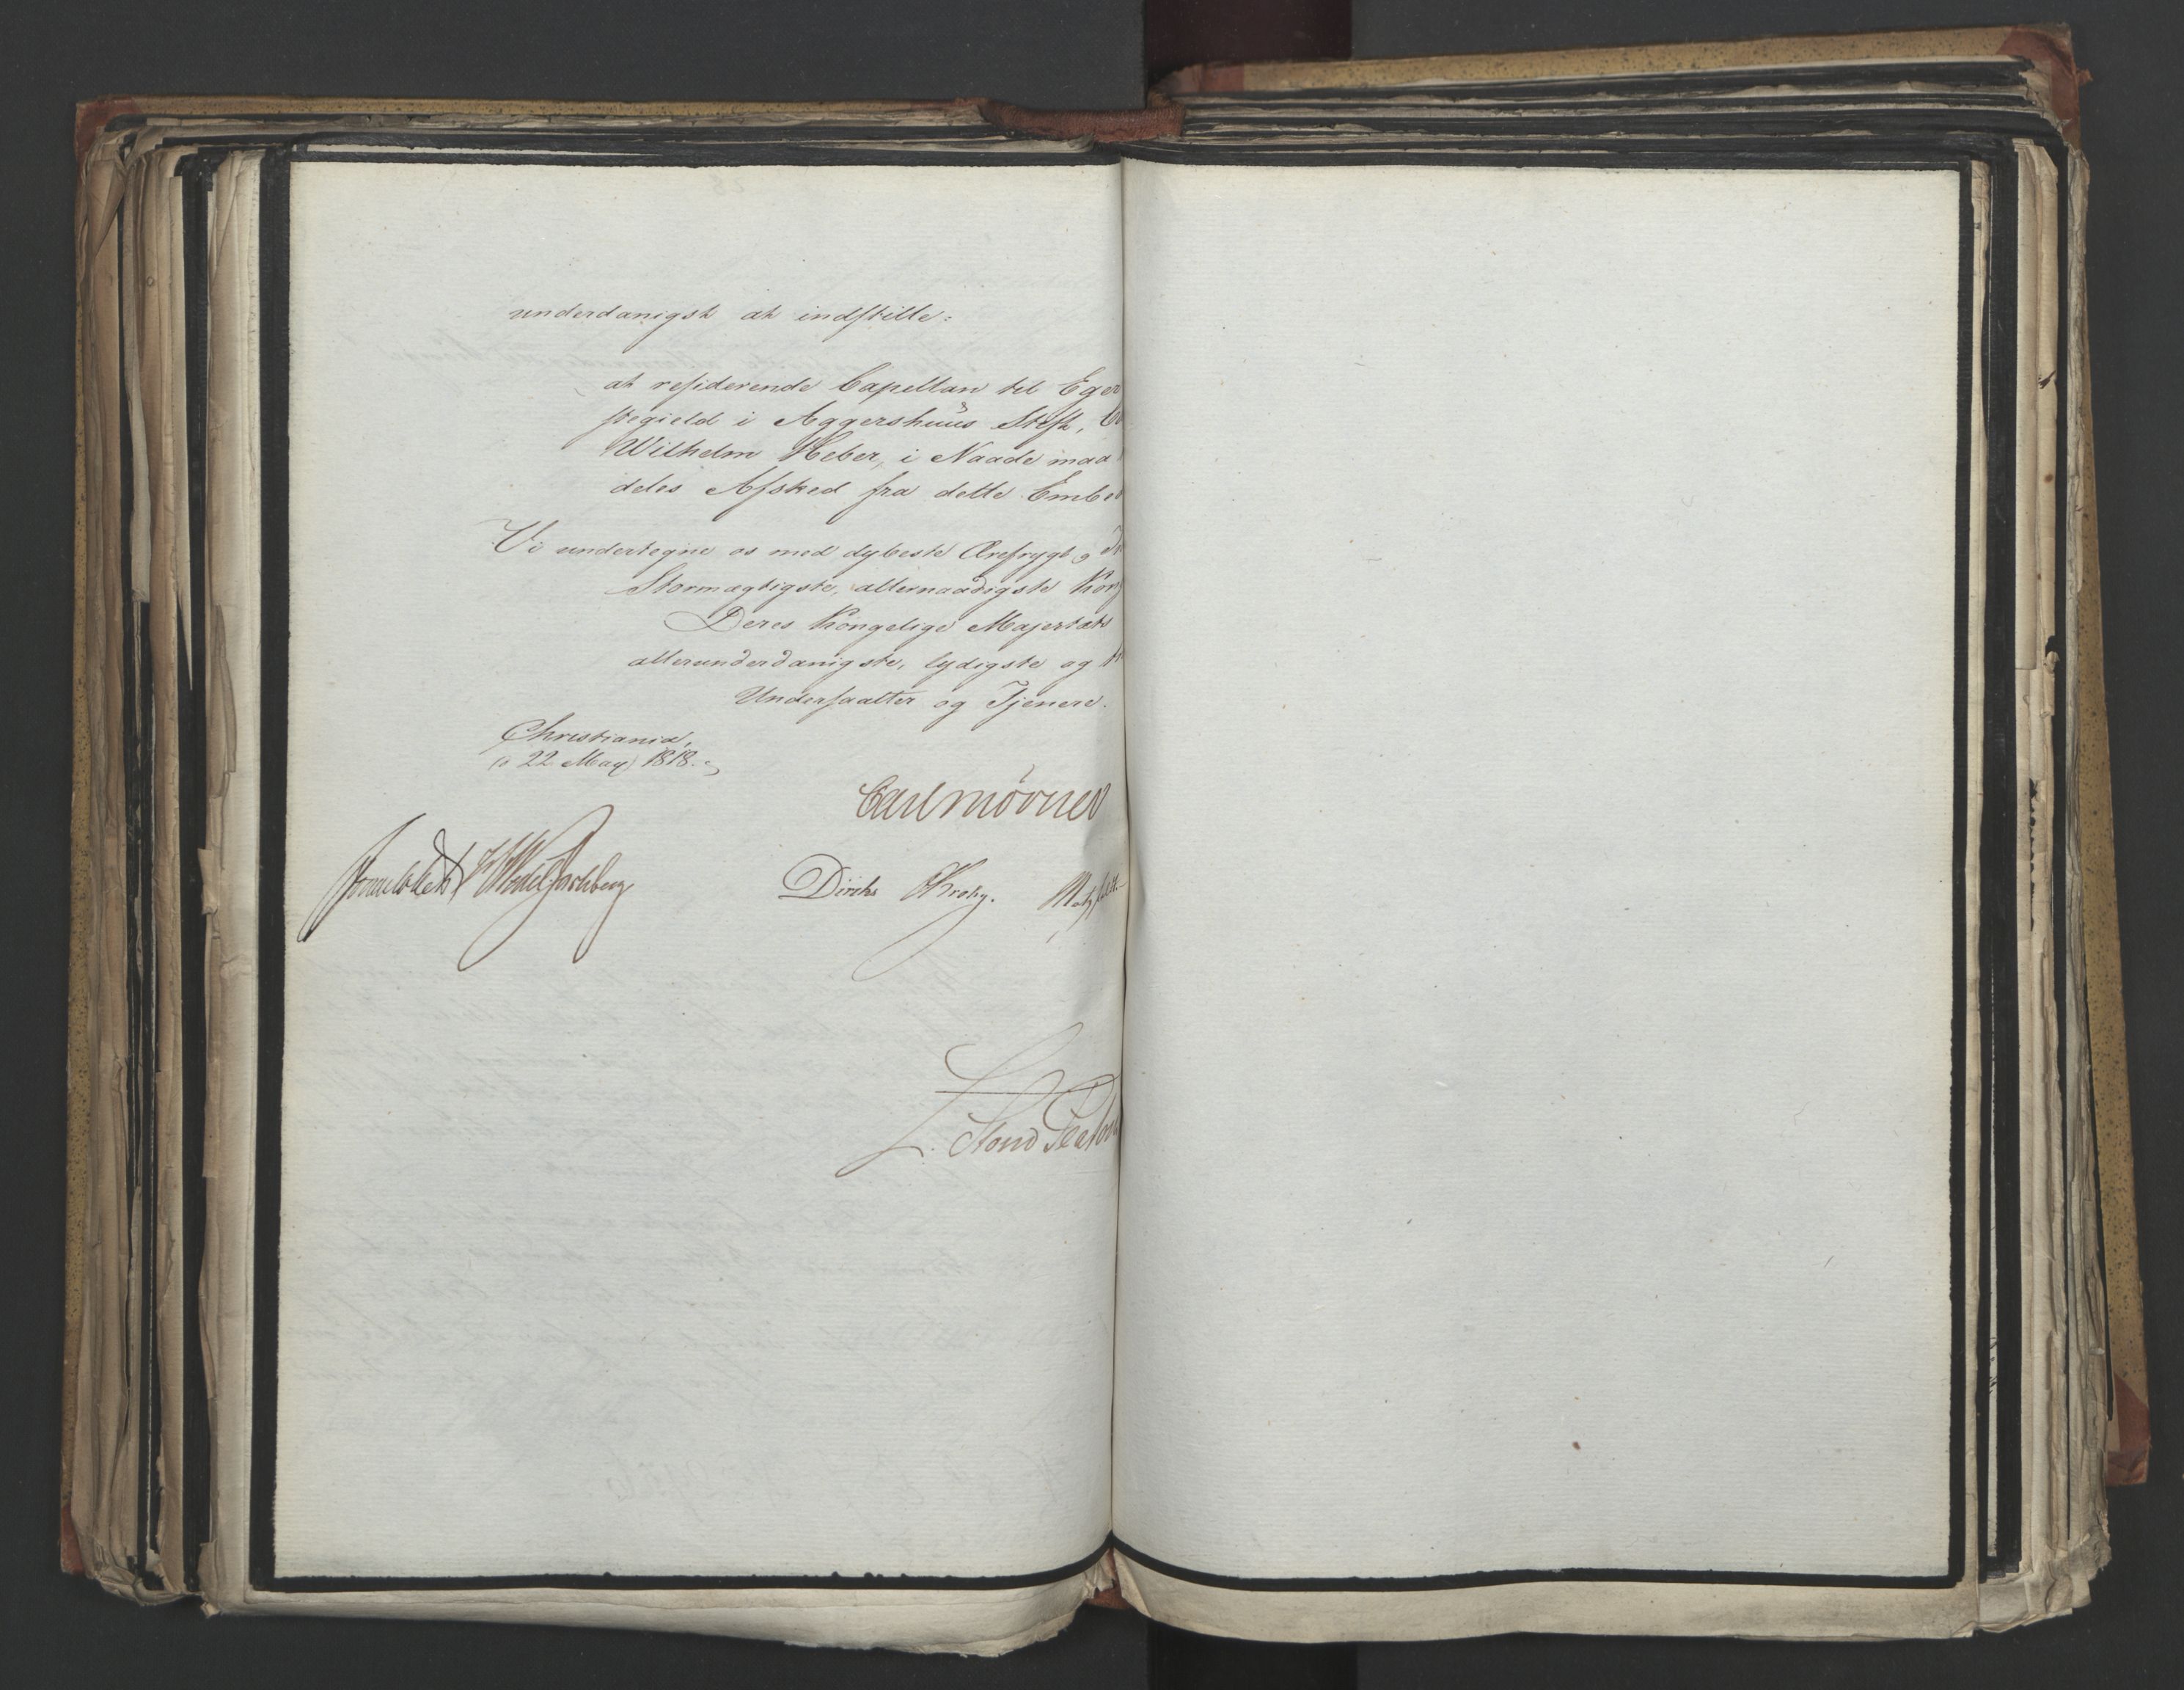 underdanigst at indstille:
at residerende Capellan til Eger
stegield i Aggershuus Stift,
Wilhelm Heber, i Naade maa
deles Afsked fra dette Embe
Vi undertegne os med dybeste Ærefrygt
Stormægtigste, allernaadigste Kon
Deres Kongelige Majestæts
allerunderdanigste, lydigste og
Undersaatter og Tjenere.
Christiania,
22 May 1818.
Carl Mörner
Sommerhielm HWedel Jarlsberg Diriks Krohg. Motzfeldt